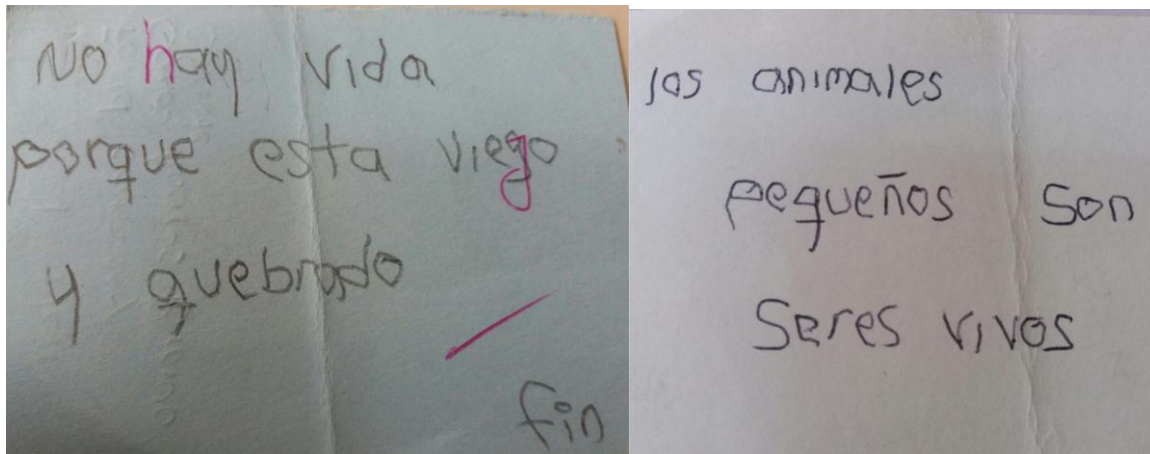 No hay vida
porque esta viego
y quebrado
fin
los animales
pequeños son
Seres vivos